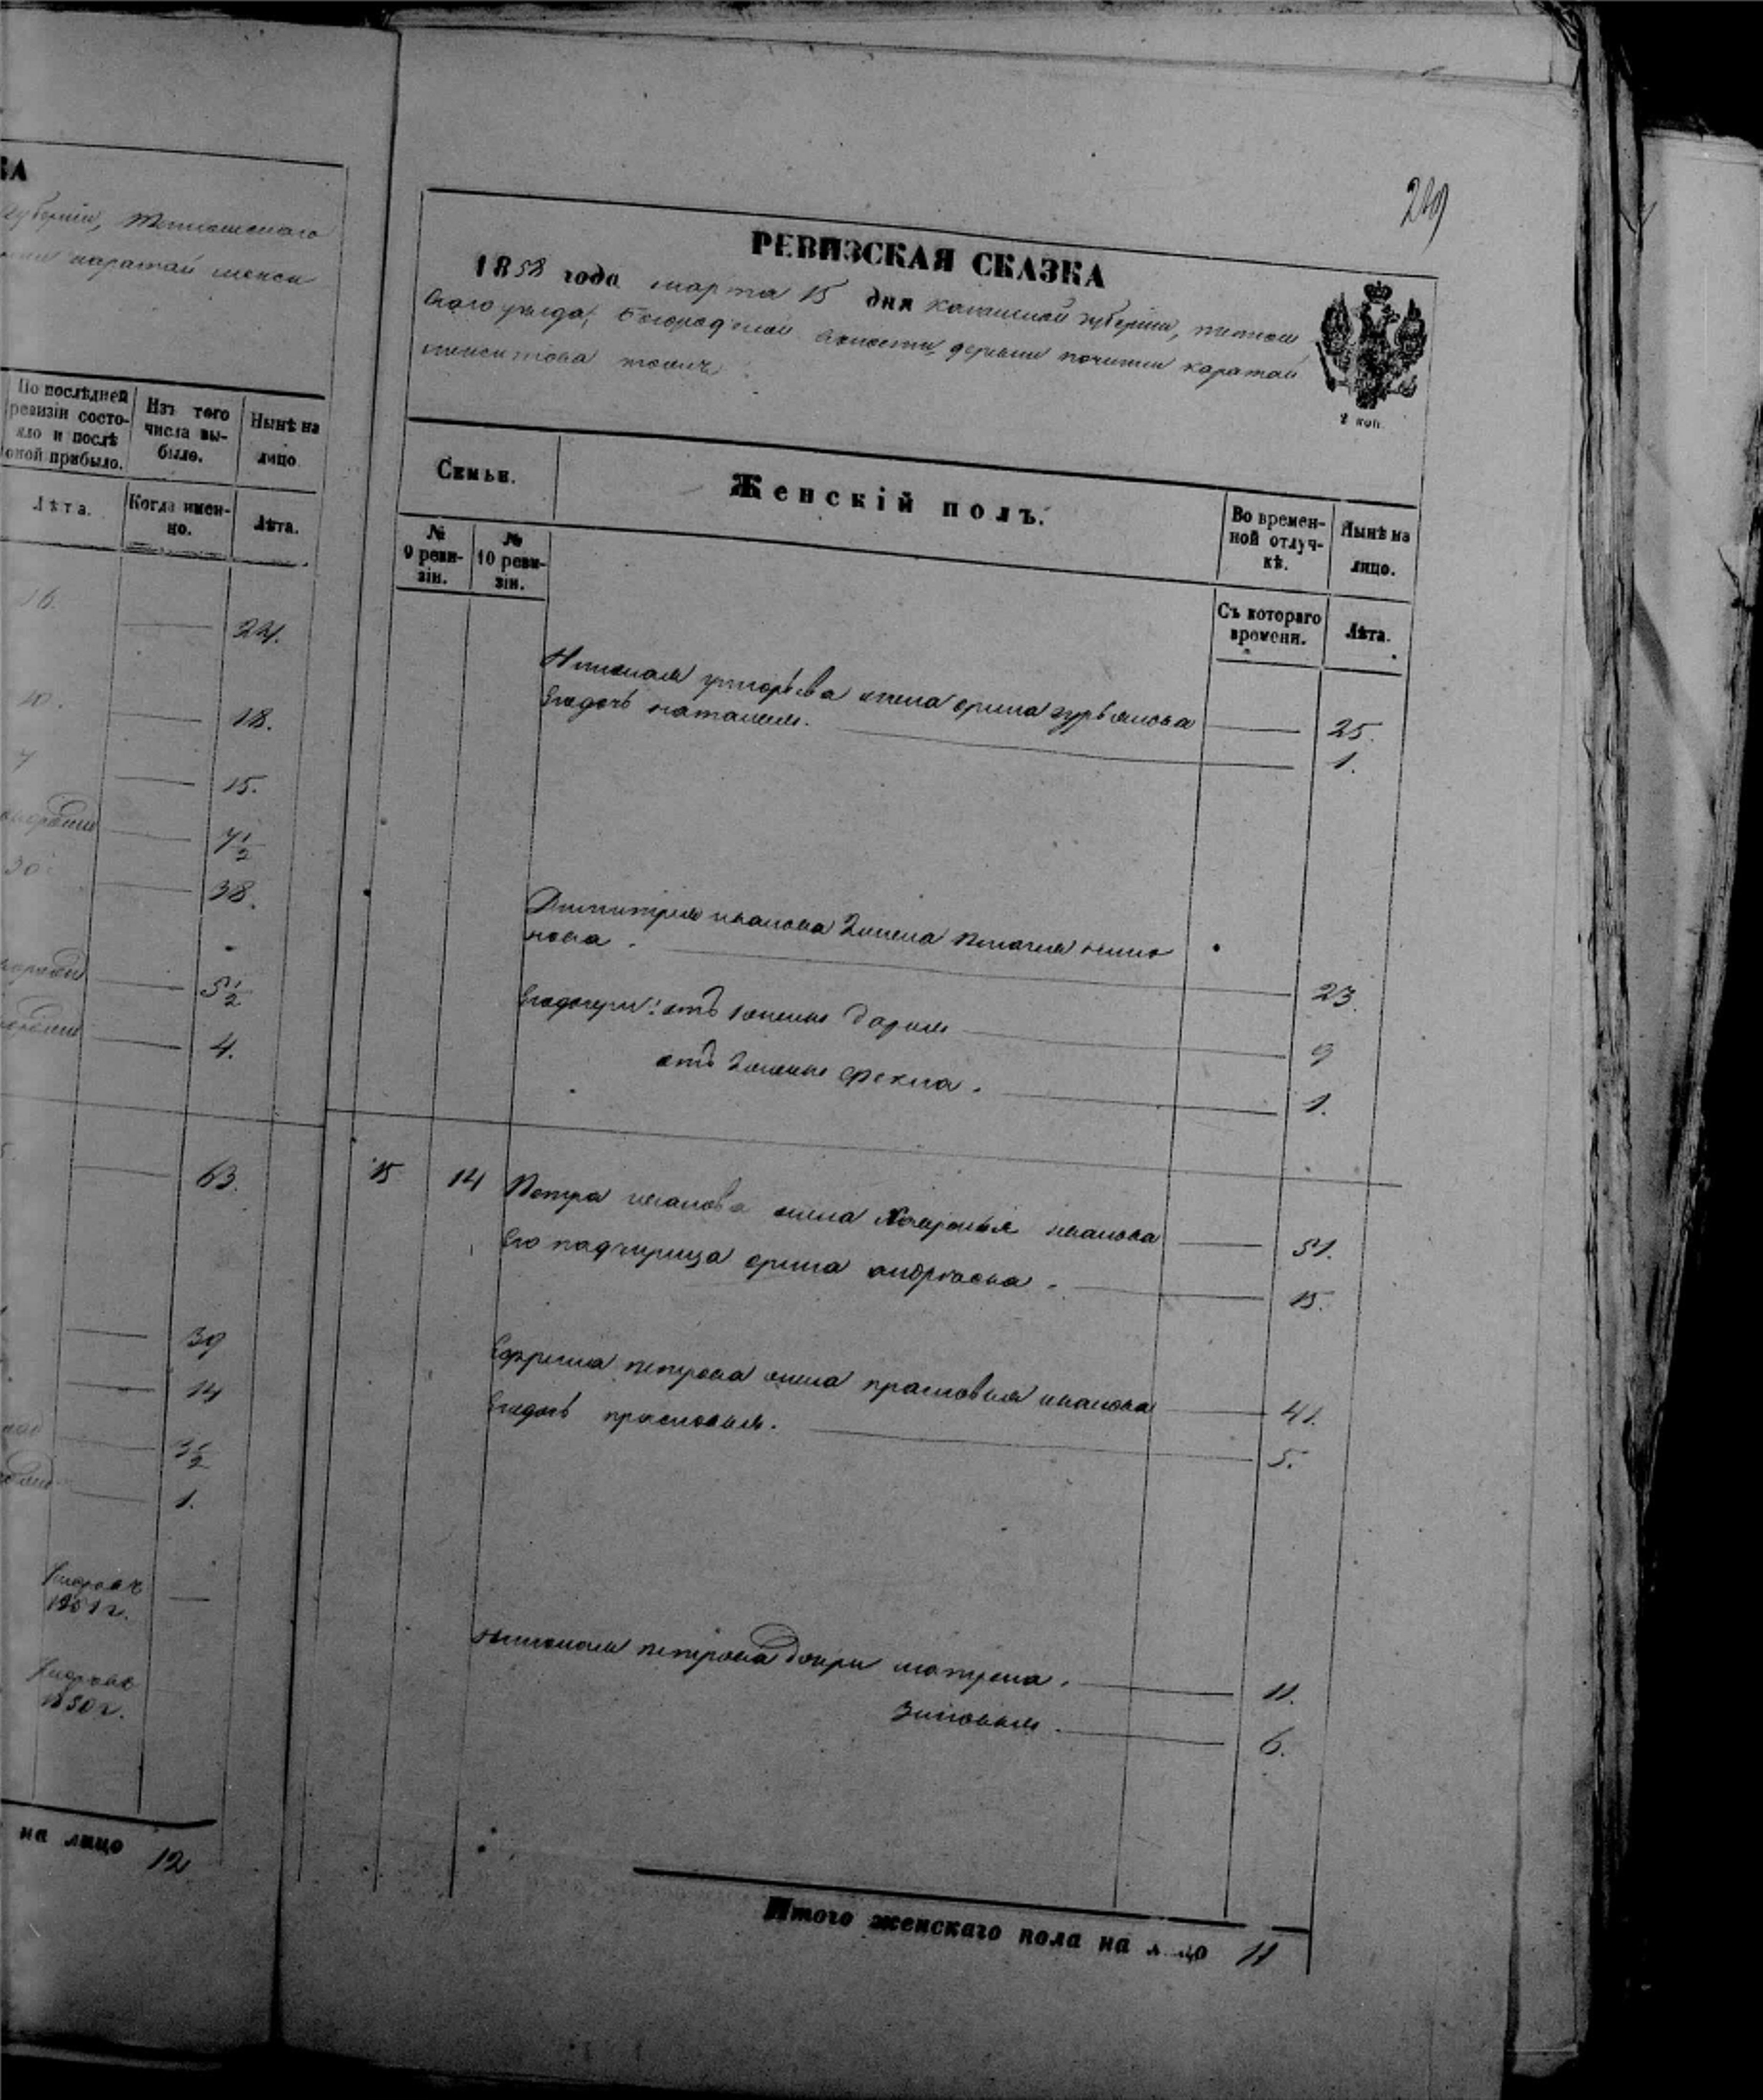 ВА
губернии, Тетюшскаго
каратай менси
По послѣдней
ревизіи состо-
яло и послѣ
оной прибыло.
Изъ того
числа вы-
было.
Нынѣ на
лицо
Лѣта.
Когда имен-
но.
Лѣта.
16.
24.
10.
18.
7
15.
7 1/2
30
38.
5 1/2
4.
63.
39
14
3 1/2
1.
1851 г.
1850 г.
на лицо 12
249
РЕВИЗСКАЯ СКАЗКА
1858 года марта 15 дня казанской губернии, тетюш
скаго уезда, Богородской волости, деревни починки каратай
менситова тожъ
2 коп.
Семьи.
Женскій полъ.
Во времен-
ной отлуч-
кѣ.
Нынѣ на
лицо.
№
9 реви-
зіи.
№
10 реви-
зіи.
Съ котораго
времени.
Лѣта.
Николая григорьева жена орина гурьянова 25.
Его дочь наталья. 1.
Димитрия иванова 2 жена
нова. 23
Его дочери: отъ 1 жены дарья 9
отъ 2 жены фекла. 1.
15 14 Петра иванова жена иванова 51.
Его падчерица орина андреева. 15.
Ефрема петрова жена прасковья иванова 41.
Его дочь прасковья. 5.
Николая петрова дочери матрена. 11.
Зиновья. 6.
Итого женскаго пола на лицо 11